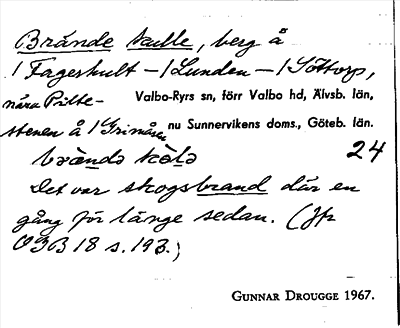 Brände kulle, berg å
1 Fageshult – 1 Lunden – 1 Söttorp,
nära Pilte- Valbo-Ryrs sn, förr Valbo hd, Älvsb. län,
stenen å 1 Grinåsen nu Sunnervikens doms., Göteb. län.
24
Det var skogsbrand där en
gång för länge sedan. (Jfr
OGB 18 s. 193.)
GUNNAR DROUGGE 1967.